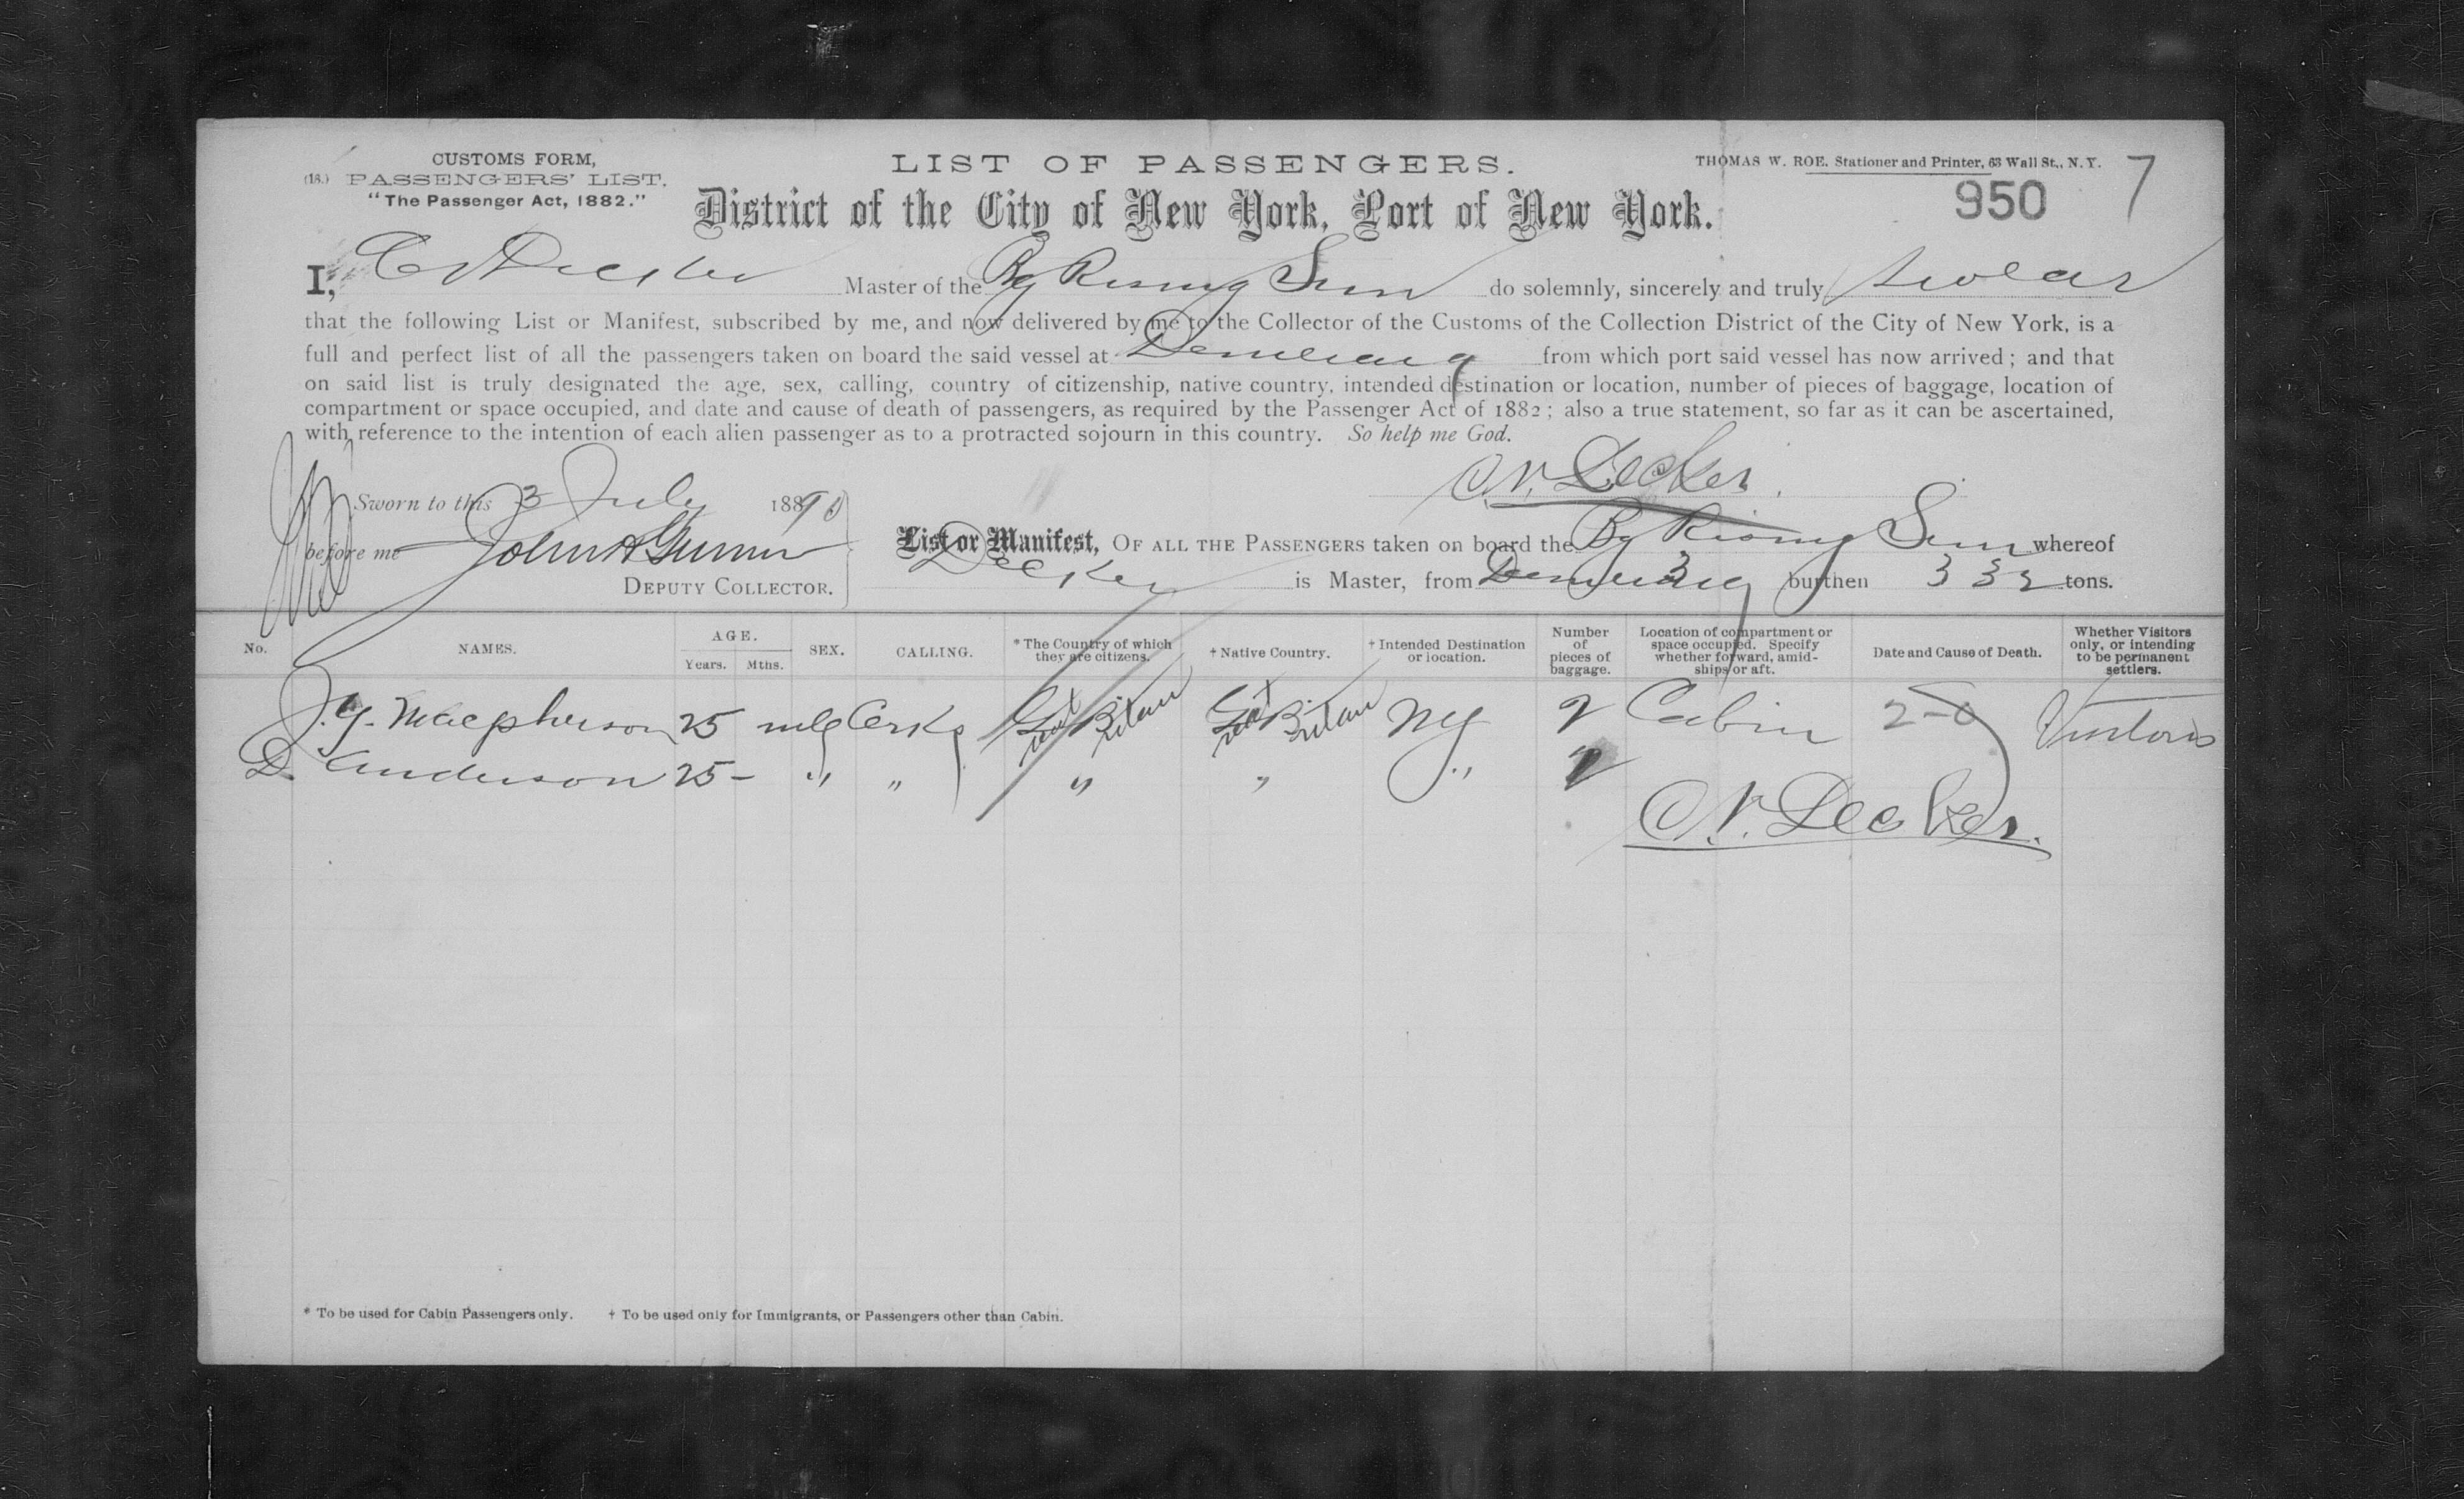 CUSTOMS FORM,
(18.) PASSENGERS' LIST.
"The Passenger Act, 1882."
LIST OF PASSENGERS.
THOMAS W. ROE, Stationer and Printer, 63 Wall St., N.Y.
7
950
District of the City of New York, Port of New York.
I, Decker Master of the Bg Rising Sun do solemnly, sincerely and truly swear
that the following List or Manifest, subscribed by me, and now delivered by me to the Collector of the Customs of the Collection District of the City of New York, is a
full and perfect list of all the passengers taken on board the said vessel at Demerara from which port said vessel has now arrived; and that
on said list is truly designated the age, sex, calling, country of citizenship, native country, intended destination or location, number of pieces of baggage, location of
compartment or space occupied, and date and cause of death of passengers, as required by the Passenger Act of 1882; also a true statement, so far as it can be ascertained,
with reference to the intention of each alien passenger as to a protracted sojourn in this country. So help me God.
C.N. Decker.
Sworn to this 3 July 1890
before me John A Gunner
DEPUTY COLLECTOR.
List or Manifest, OF ALL THE PASSENGERS taken on board the Bg Rising Sun whereof
Decker is Master, from Demerara burthen 332 tons.
No. NAMES. AGE. Years. Mths. SEX. CALLING. * The Country of which they are citizens. † Native Country. † Intended Destination or location. Number of pieces of baggage. Location of compartment or space occupied. Specify whether forward, amidships or aft. Date and Cause of Death. Whether Visitors only, or intending to be permanent settlers.
J. Y. Macpherson 25 mle Clerks Great Britain Great Britain NY 2 Cabin 2-0 Visitors
D. Anderson 25 - " " " " " 2
C.N. Decker.
* To be used for Cabin Passengers only. † To be used only for Immigrants, or Passengers other than Cabin.